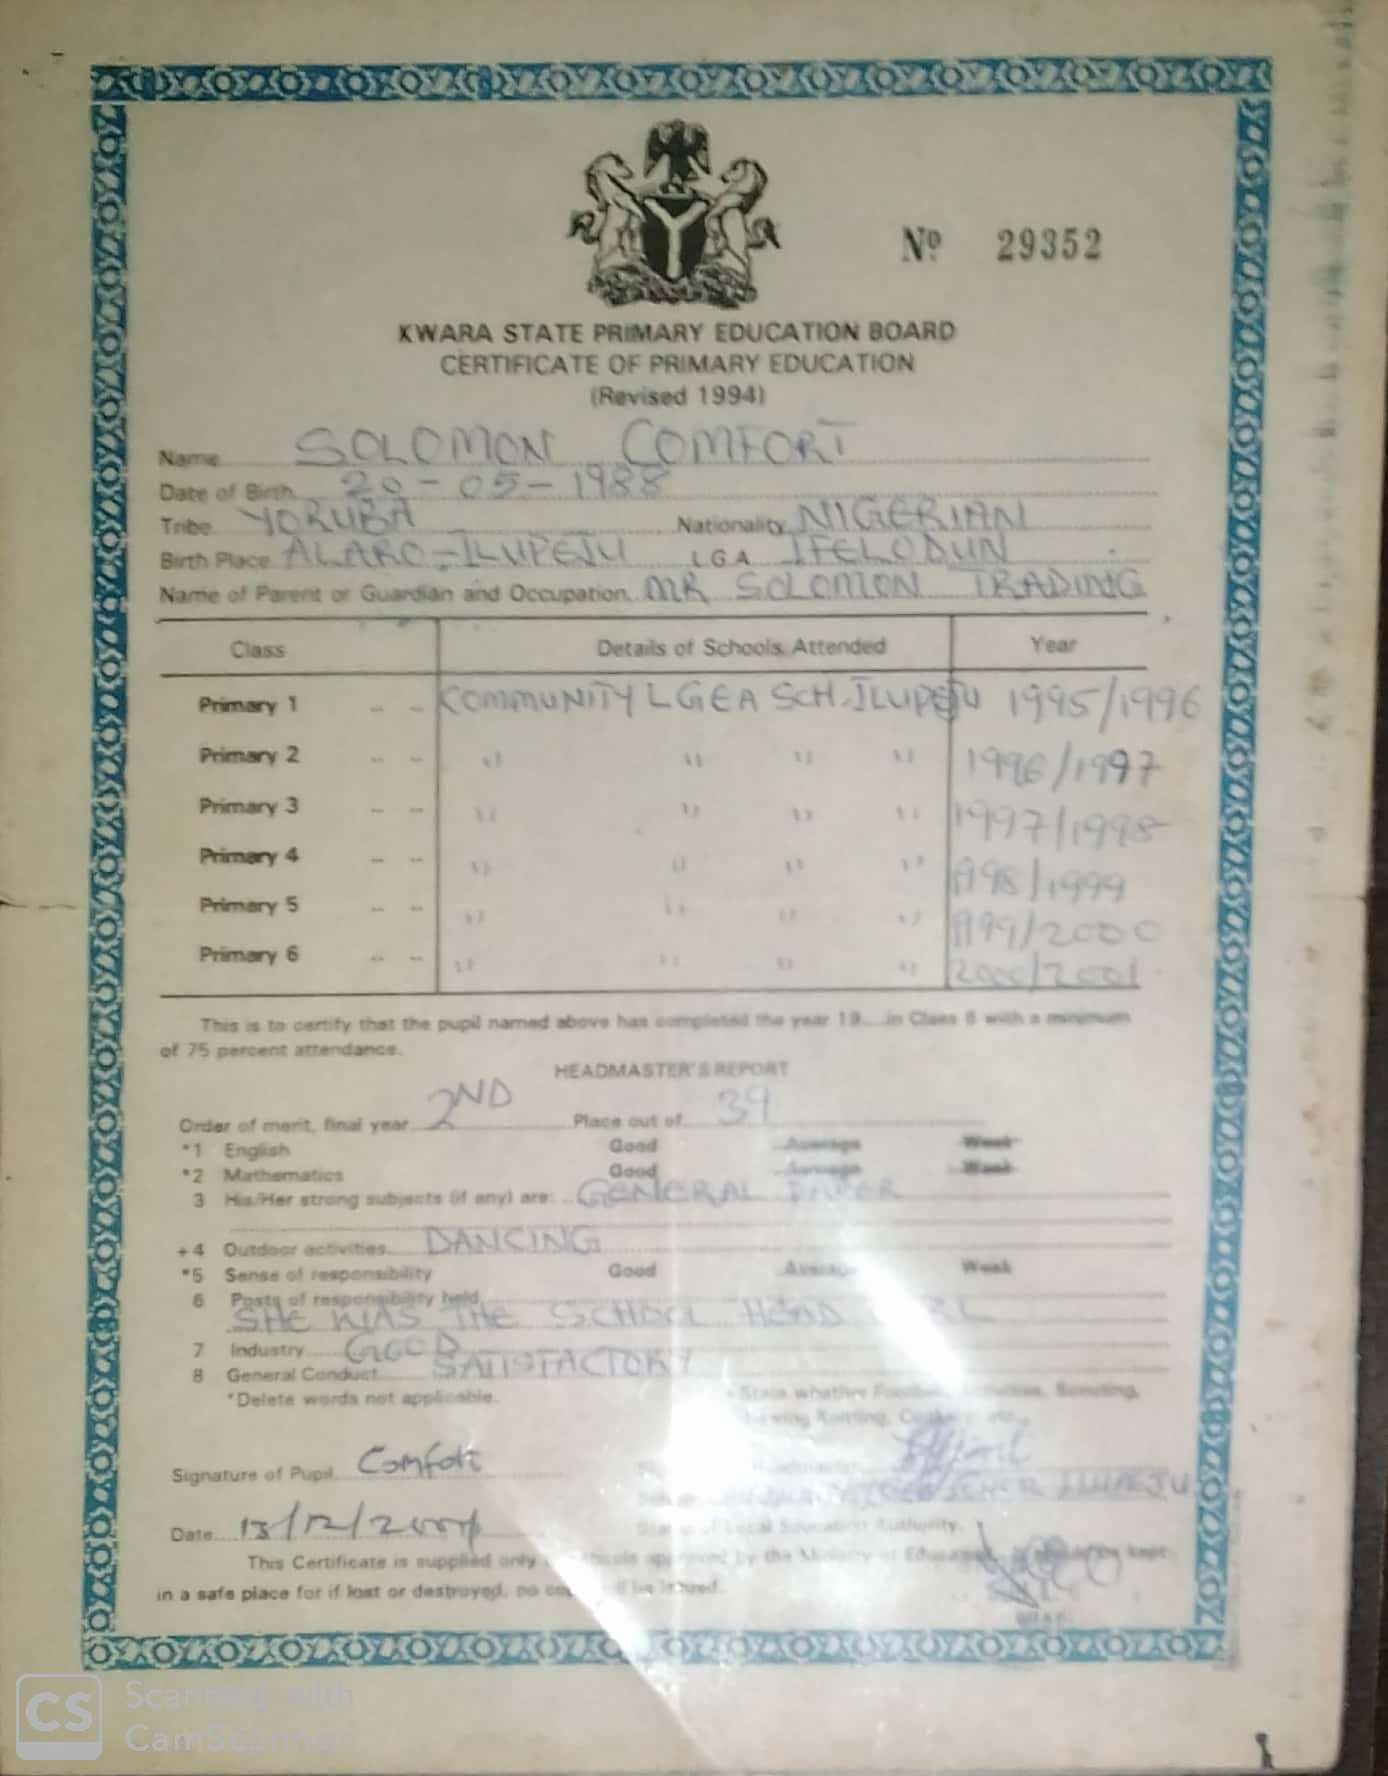 Nº 29352
KWARA STATE PRIMARY EDUCATION BOARD
CERTIFICATE OF PRIMARY EDUCATION
(Revised 1994)
Name SOLOMON COMFORT
Date of Birth 20-05-1988
Tribe YORUBA Nationality NIGERIAN
Birth Place ALARO-ILUPEJU LGA IFELODUN
Name of Parent or Guardian and Occupation MR SOLOMON TRADING
Class Details of Schools Attended Year
Primary 1 COMMUNITY LGEA SCH. ILUPEJU 1995/1996
Primary 2 " " " " 1996/1997
Primary 3 " " " " 1997/1998
Primary 4 " " " " 1998/1999
Primary 5 " " " " 1999/2000
Primary 6 " " " " 2000/2001
This is to certify that the pupil named above has completed the year 19....in Class 6 with a minimum
of 75 percent attendance.
HEADMASTER'S REPORT
Order of merit, final year 2ND Place out of 39
*1 English Good Average Weak
*2 Mathematics Good Average Weak
3 His/Her strong subjects (if any) are: GENERAL PAPER
+4 Outdoor activities DANCING
*5 Sense of responsibility Good Average Weak
6 Posts of responsibility held
SHE WAS THE SCHOOL HEAD
7 Industry GOOD
8 General Conduct SATISFACTORY
*Delete words not applicable. + State whether Scouting,
Knitting,
Signature of Pupil Comfort Headmaster
ILUPEJU
Date 13/12/ Local Education Authority.
This Certificate is supplied only approved by the Ministry of kept
in a safe place for if lost or destroyed, no be issued.
CS Scanned with
CamScanner